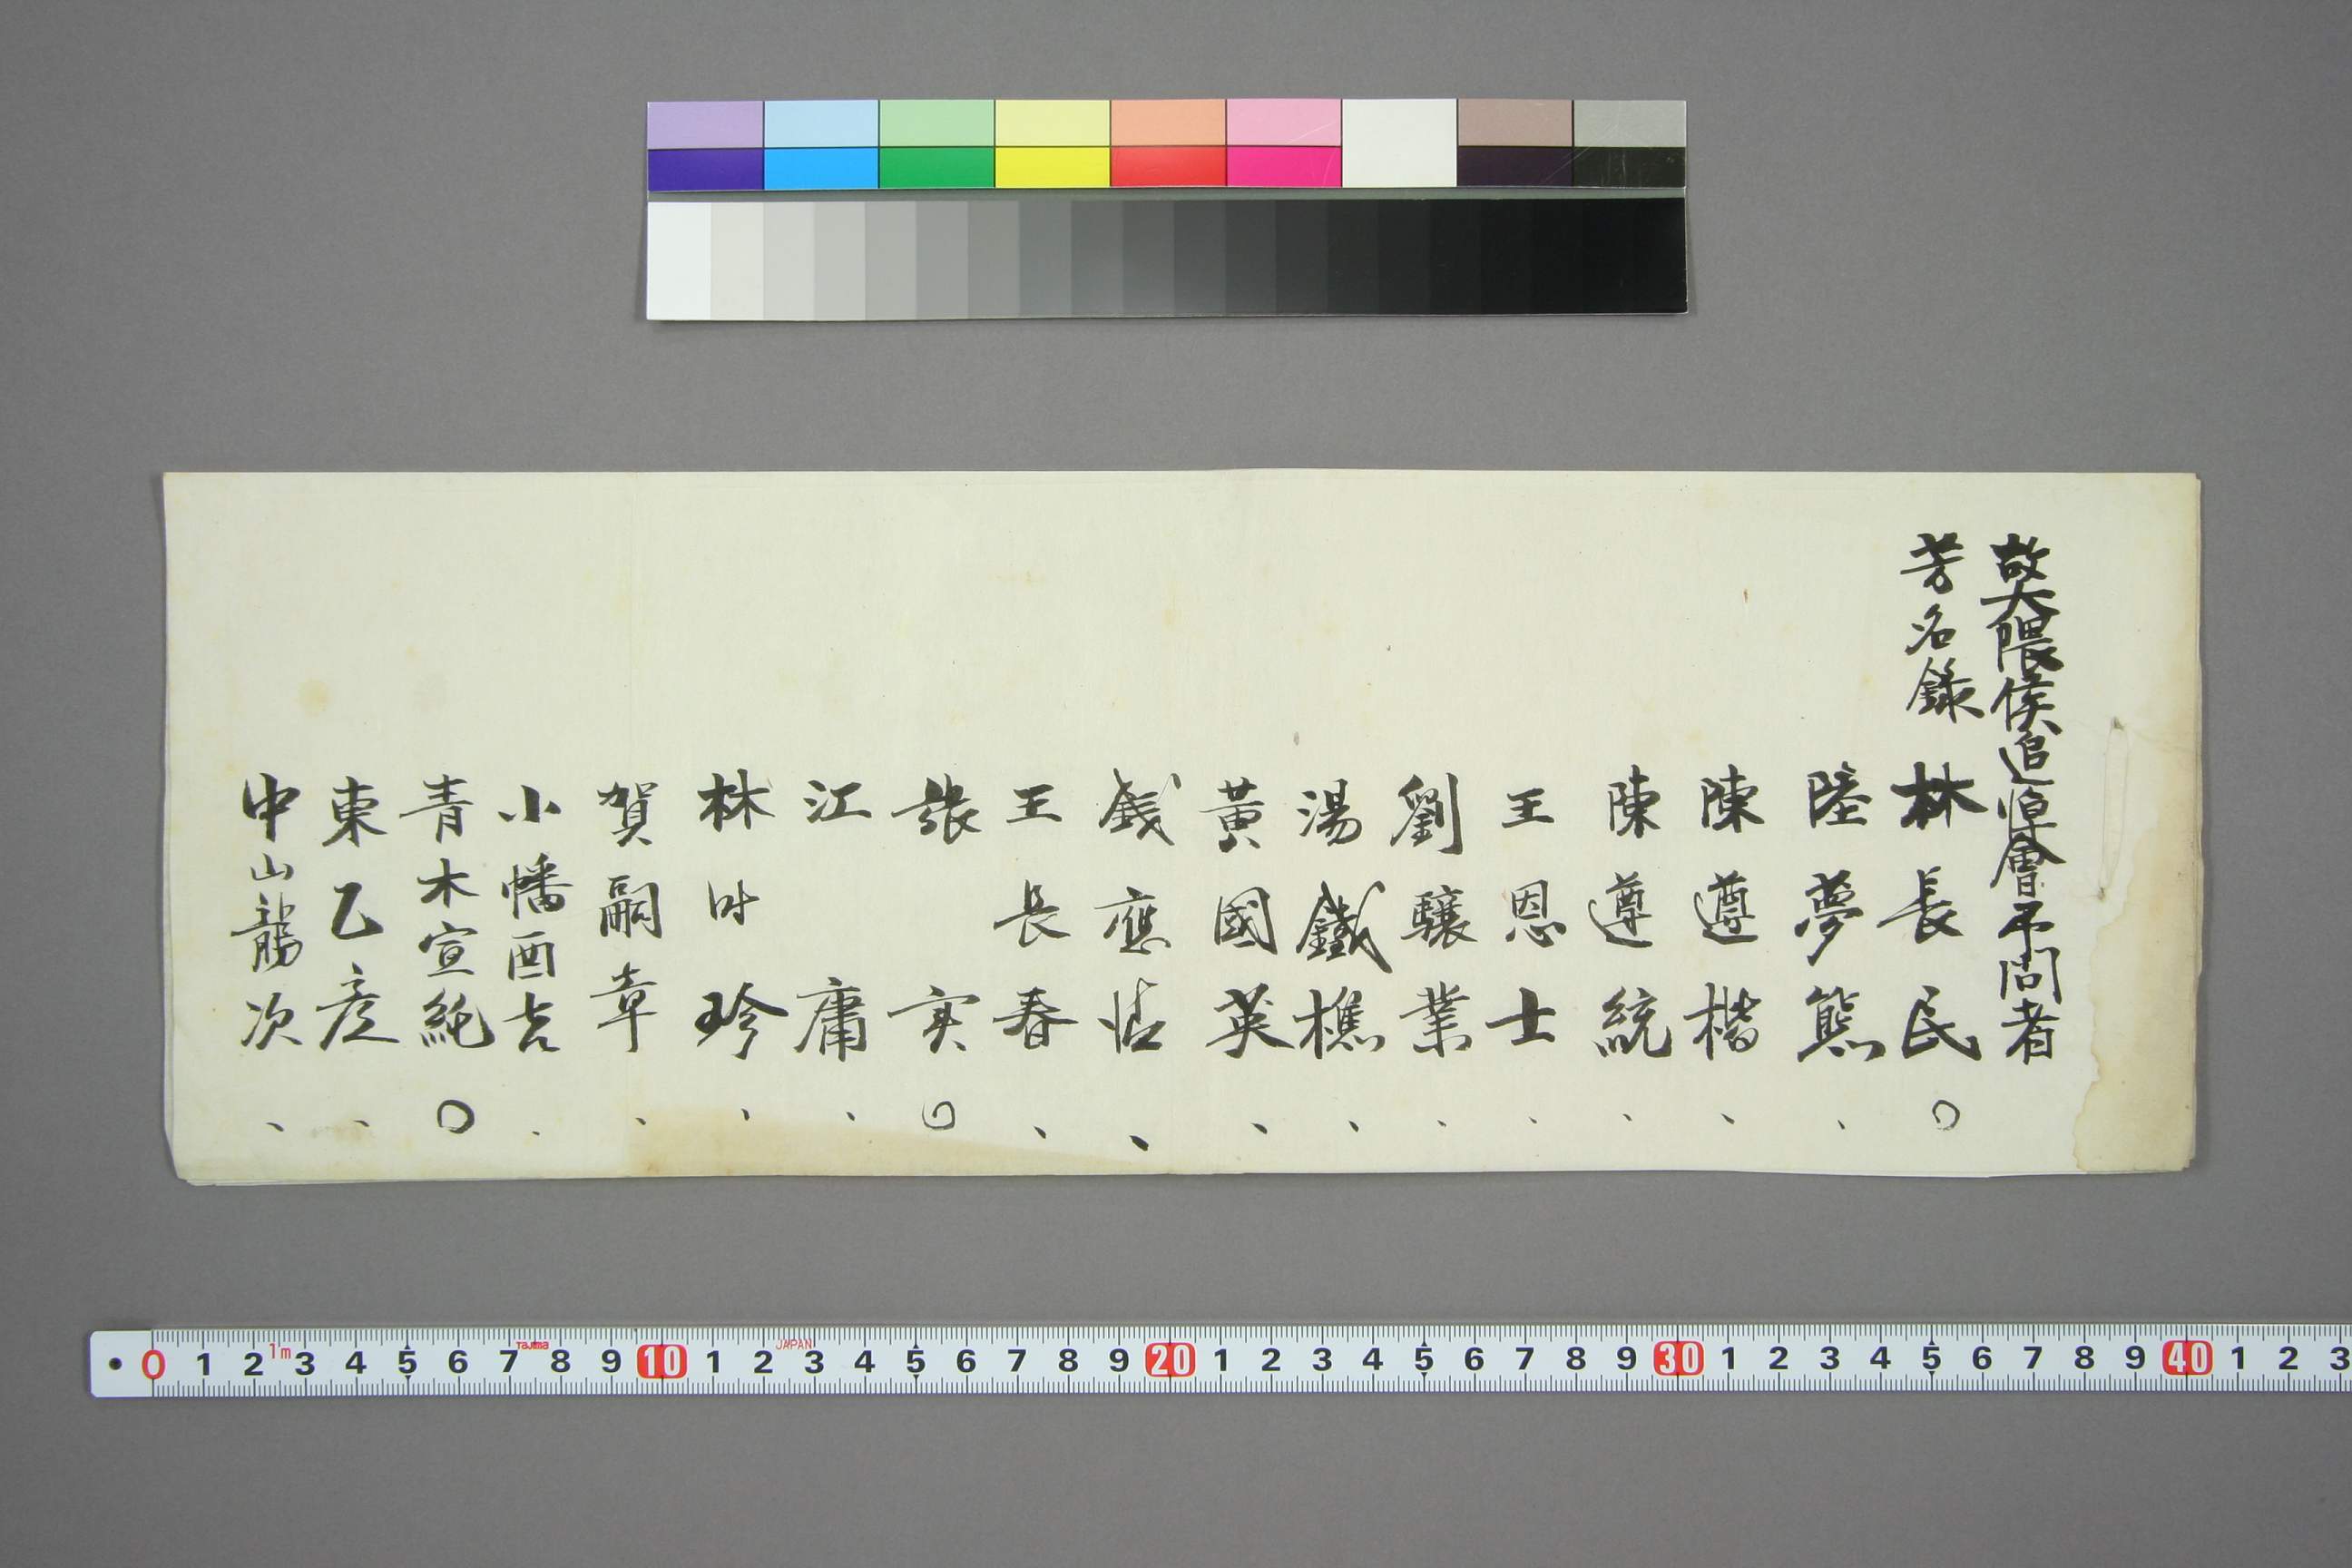 故大隈侯追悼會弔問者
芳名錄
林長民
陸夢熊
陳遵楷
陳遵統
王恩士
劉驤業
湯鐵樵
黃國英
錢應
王長春
張寅
江庸
林珍
賀嗣章
小幡酉吉
青木宣純
東乙彦
中山龍次
0 1 2 3 4 5 6 7 8 9 10 1 2 3 4 5 6 7 8 9 20 1 2 3 4 5 6 7 8 9 30 1 2 3 4 5 6 7 8 9 40 1 2 3
1m Tajima JAPAN